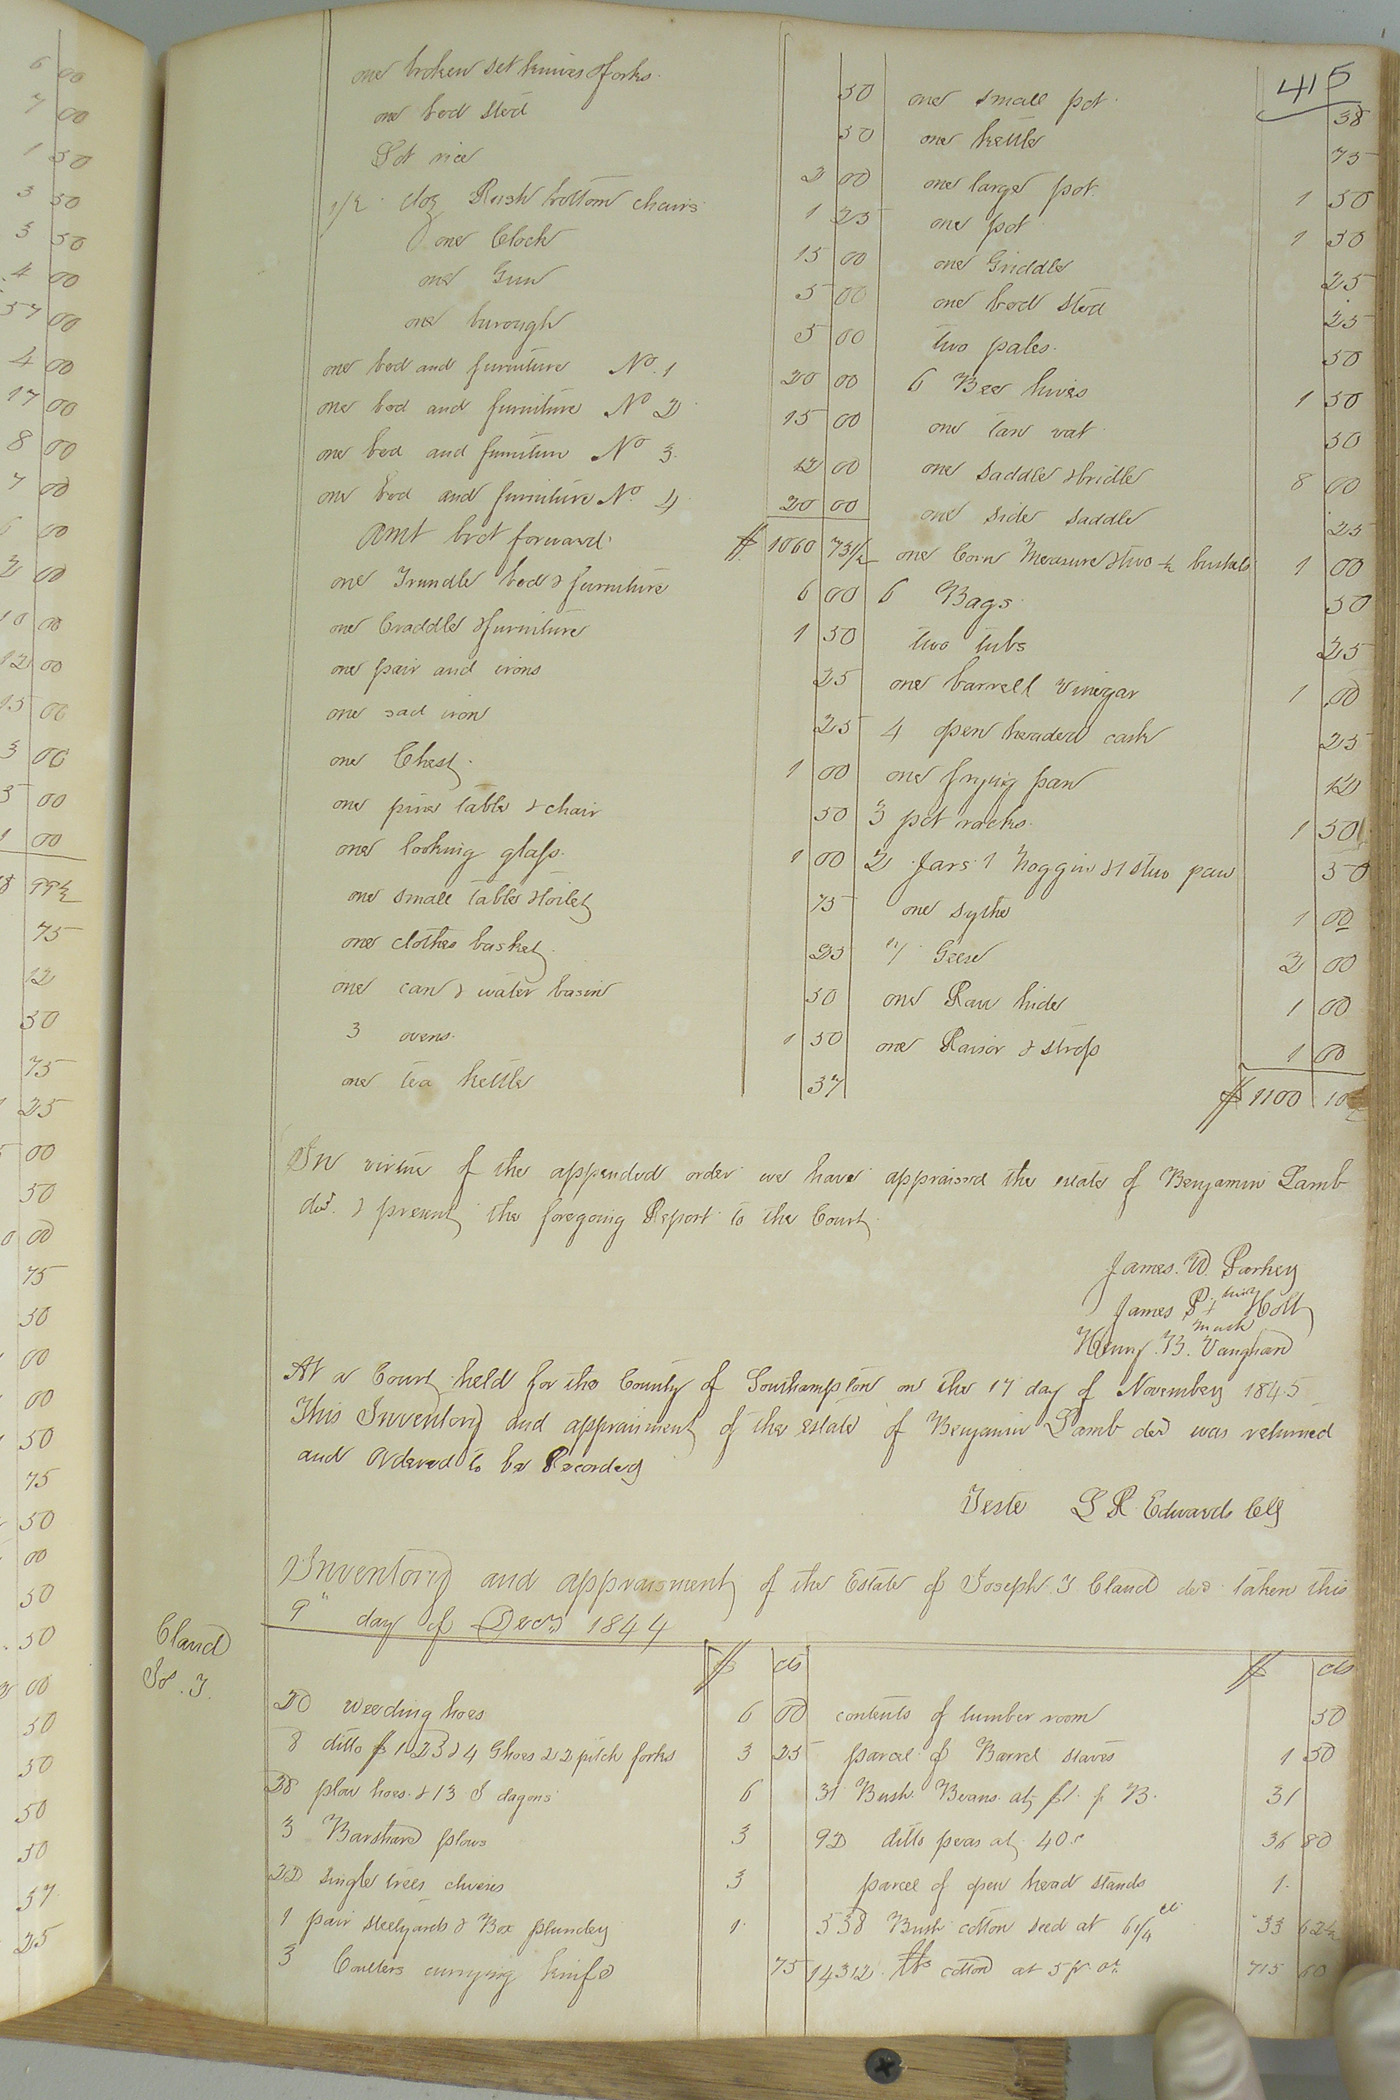 415
one broken set knives & forks 50
one bed sted 50
Lot rice 2 00
1/2 doz Rush bottom chairs 1 25
one Clock 15 00
one Gun 5 00
one burough 5 00
one bed and furniture No. 1 20 00
one bed and furniture No 2 15 00
one bed and furniture No 3 12 00
one bed and furniture No. 4 20 00
Amt brot forward $ 1060 73 1/2
one Trundle bed & furniture 6 00
one Craddle & furniture 1 50
one pair and irons 25
one sad iron 25
one Chest 1 00
one pine table & chair 50
one looking glass 1 00
one small table & toilet 75
one clothes basket 25
one can & water basin 50
3 ovens 1 50
one tea kettle 37
one small pot 38
one kettle 75
one large pot 1 50
one pot 1 50
one Griddle 25
one bed sted 25
two pales 50
6 Bee hives 1 50
one tan vat 50
one saddle & bridle 8 00
one side saddle 25
one Corn Measure & two 1/2 bushels 1 00
6 Bags 50
two tubs 25
one barrell vinegar 1 00
4 open headed cask 25
one frying pan 12
3 pot racks 1 50
2 Jars 1 Noggin & 1 stew pan 50
one sythe 1 00
7 Geese 2 00
one Raw hide 1 00
one Raisor & strop 1 00
$ 1100 10
In virtue of the appended order we have appraised the estate of Benjamin Lamb
decd. & present the foregoing Report to the Court
James. W. Parkey
James P + his Holt
mark
Henry. B. Vaughan
At a Court held for the County of Southampton on the 17 day of November 1845
This Inventory and appraisment of the estate of Benjamin Lamb decd was returned
and Ordered to be Recorded
Teste L R Edwards Clk
Inventory and appraisment of the Estate of Joseph T Claud decd taken this
9" day of Decr 1844
Claud
Jos. T.
$ cts $ cts
20 weeding hoes 6 00 contents of lumber room 50
8 ditto $1.25 & 4 Ghoes & 2 pitch forks 3 25 parcel of Barrel staves 1 50
38 plow hoes & 13 S dagons 6 31 Bush. Beans at $1. p B. 31
3 Barshare plows 3 92 ditto peas at 40c 36 80
22 single trees clivises 3 parcel of open head stands 1.
1 pair steelyards & Box plunder 1. 538 Bush cotton seed at 6 1/4 ct 33 62 1/2
3 Coulters currying knife 75 14312 lbs cotton at 5 pr. ct. 715 60
6 00
7 00
1 50
3 50
3 50
4 00
57 00
4 00
17 00
8 00
7 00
6 00
2 00
10 00
12 00
15 00
3 00
5 00
1 00
99 1/2
75
12
50
75
25
00
50
00
75
50
00
00
50
75
50
00
50
50
00
50
50
50
50
37
25